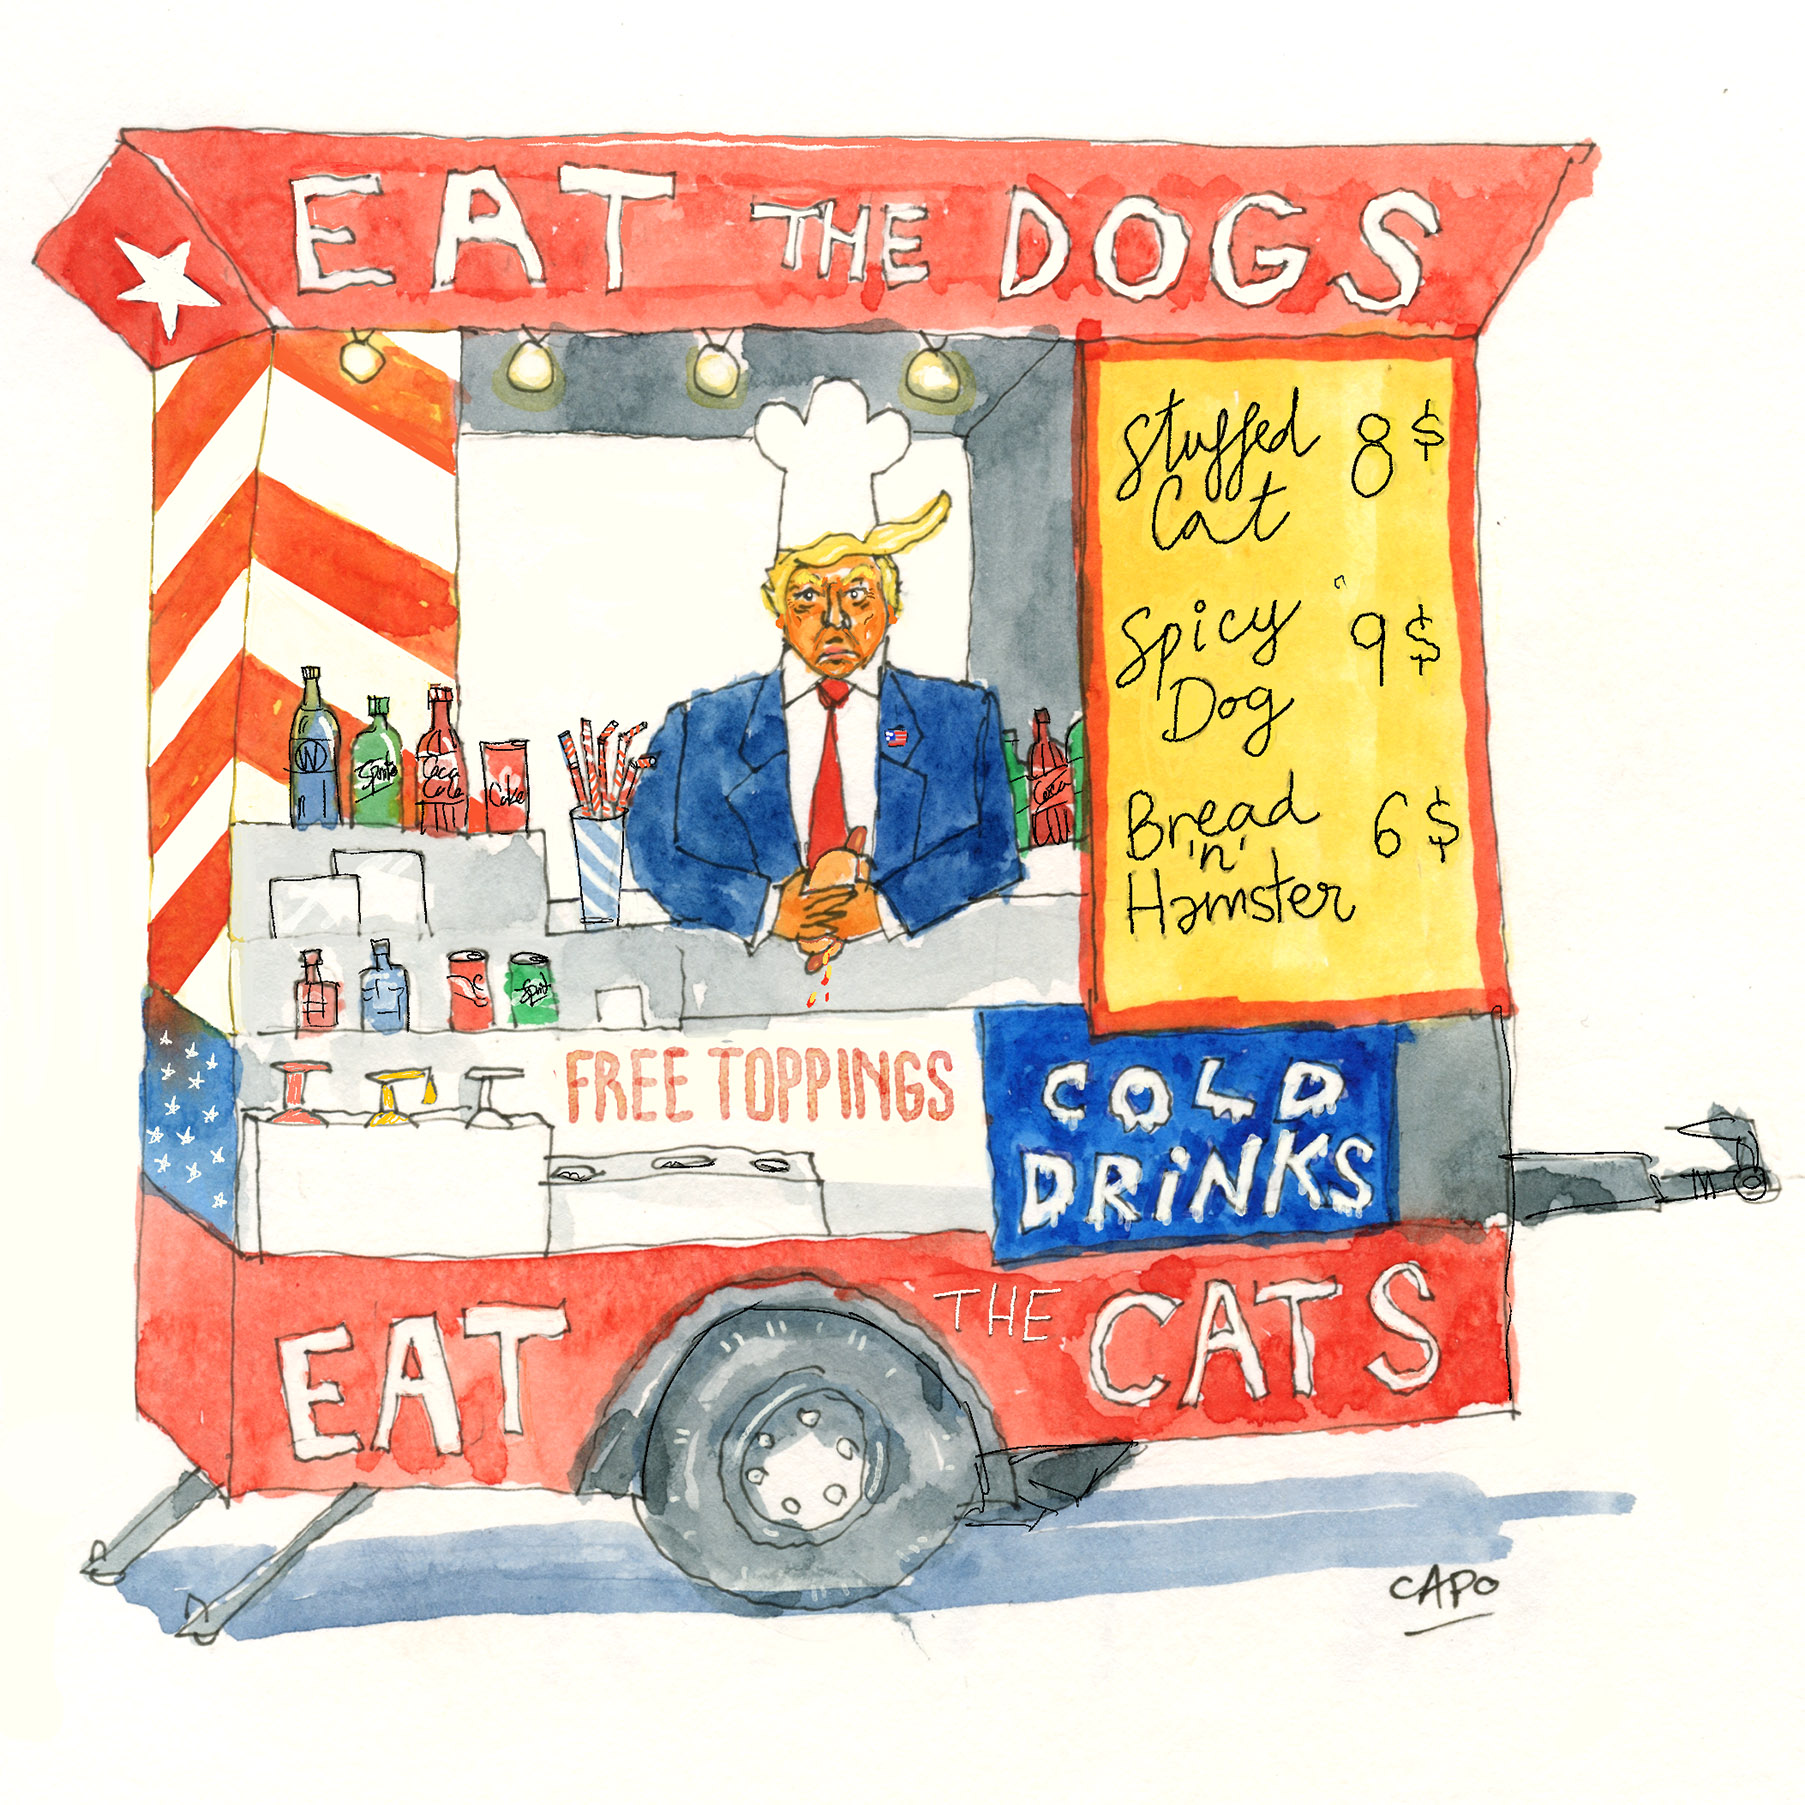 EAT THE DOGS
Stuffed 8$
Cat
Spicy 9$
Dog
Bread 6$
'n'
Hamster
W
Sprite
Coca
Cola
Coke
Coca
Sprit
FREE TOPPINGS
COLD
DRiNKS
EAT THE CATS
CAPO